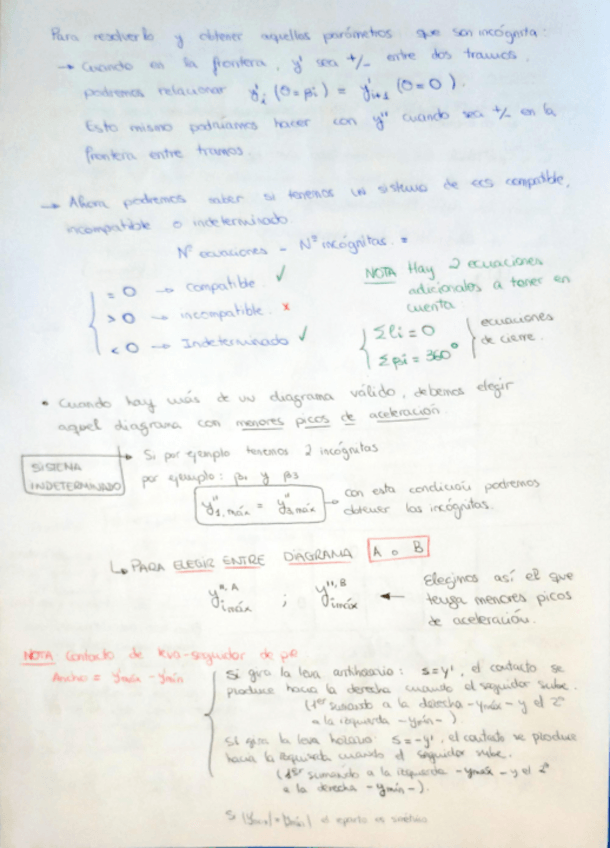 Para resolverlo y obtener aquellos parámetros que son incógnita:
→ Cuando en la frontera, y' sea +/- entre dos tramos,
podremos relacionar y'i (θ=βi) = y'i+1 (θ=0).
Esto mismo podríamos hacer con y'' cuando sea +/- en la
frontera entre tramos.
→ Ahora podremos saber si tenemos un sistema de ecs compatible,
incompatible o indeterminado
Nº ecuaciones - Nº incógnitas =
= 0 → compatible ✓
> 0 → incompatible. x
< 0 → Indeterminado ✓
NOTA Hay 2 ecuaciones
adicionales a tener en
cuenta
Σli = 0
Σβi = 360°
ecuaciones
de cierre.
• Cuando hay más de un diagrama válido, debemos elegir
aquel diagrama con menores picos de aceleración.
SISTEMA
INDETERMINADO
→ Si por ejemplo tenemos 2 incógnitas
por ejemplo: β1 y β3
y''1,máx = y''3,máx
→ con esta condición podremos
obtener las incógnitas.
↳ PARA ELEGIR ENTRE DIAGRAMA A o B
y'',A imáx ; y'',B imáx
← Elegimos así el que
tenga menores picos
de aceleración.
NOTA Contacto de leva-seguidor de pie
Ancho = y'máx - y'mín
Si gira la leva antihorario: s=y', el contacto se
produce hacia la derecha cuando el seguidor sube.
(1er sumando a la derecha -ymáx- y el 2º
a la izquierda -ymín-).
Si gira la leva horario: s=-y', el contacto se produce
hacia la izquierda cuando el seguidor sube.
(1er sumando a la izquierda -ymáx- y el 2º
a la derecha -ymín-).
Si |ymáx|=|ymín| el es simétrico